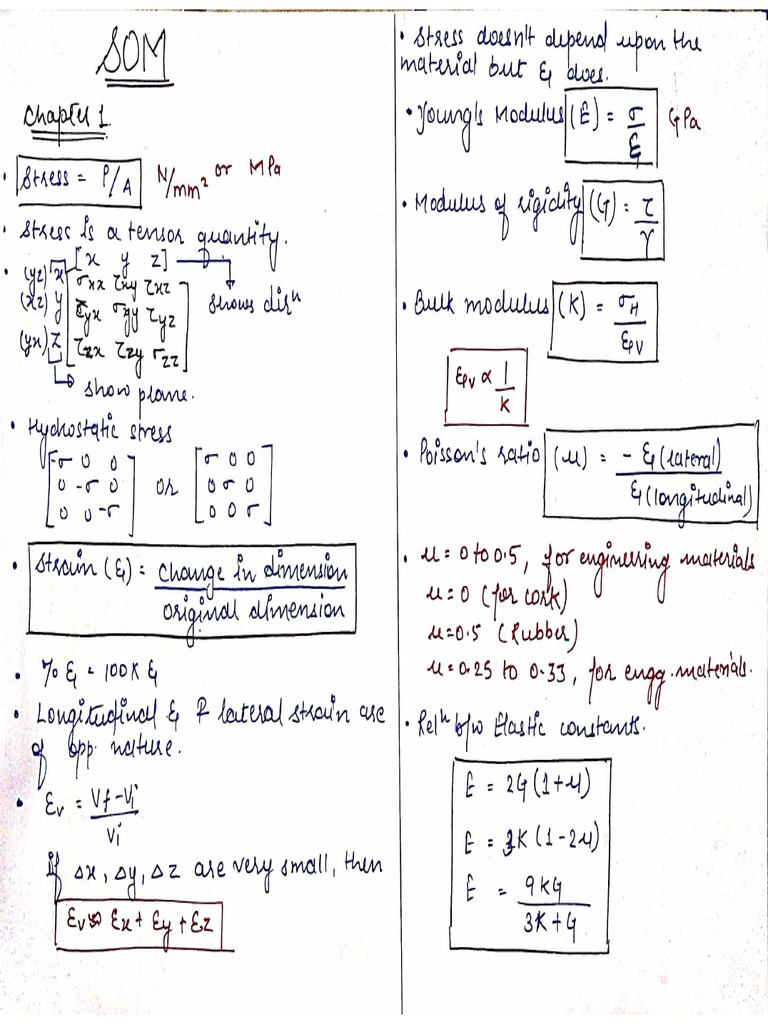 SOM
Chapter 1
• Stress = P/A N/mm² or MPa
• Stress is a tensor quantity.
• [x y z] → shows dirⁿ
(yz) x σxx τxy τxz
(xz) y σyx σyy τyz
(yx) z τzx τzy σzz
↳ show plane.
• Hydrostatic stress
[-σ 0 0 [σ 0 0
0 -σ 0 or 0 σ 0
0 0 -σ] 0 0 σ]
• Strain (ε) = change in dimension
original dimension
• % ε = 100 x ε
• Longitudinal ε & lateral strain are
of opp. nature.
• εv = Vf-Vi
Vi
If Δx, Δy, Δz are very small, then
εv ≈ εx + εy + εz
• Stress doesn't depend upon the
material but ε does.
• Young's Modulus (E) = σ/ε GPa
• Modulus of rigidity (G) = τ/γ
• Bulk modulus (K) = σH/εv
εv ∝ 1/K
• Poisson's ratio (μ) = - ε (lateral)
ε (longitudinal)
• μ = 0 to 0.5, for engineering materials
μ = 0 (for cork)
μ = 0.5 (Rubber)
μ = 0.25 to 0.33, for engg. materials.
• Relⁿ b/w Elastic constants.
E = 2G (1+μ)
E = 3K (1-2μ)
E = 9KG
3K+G